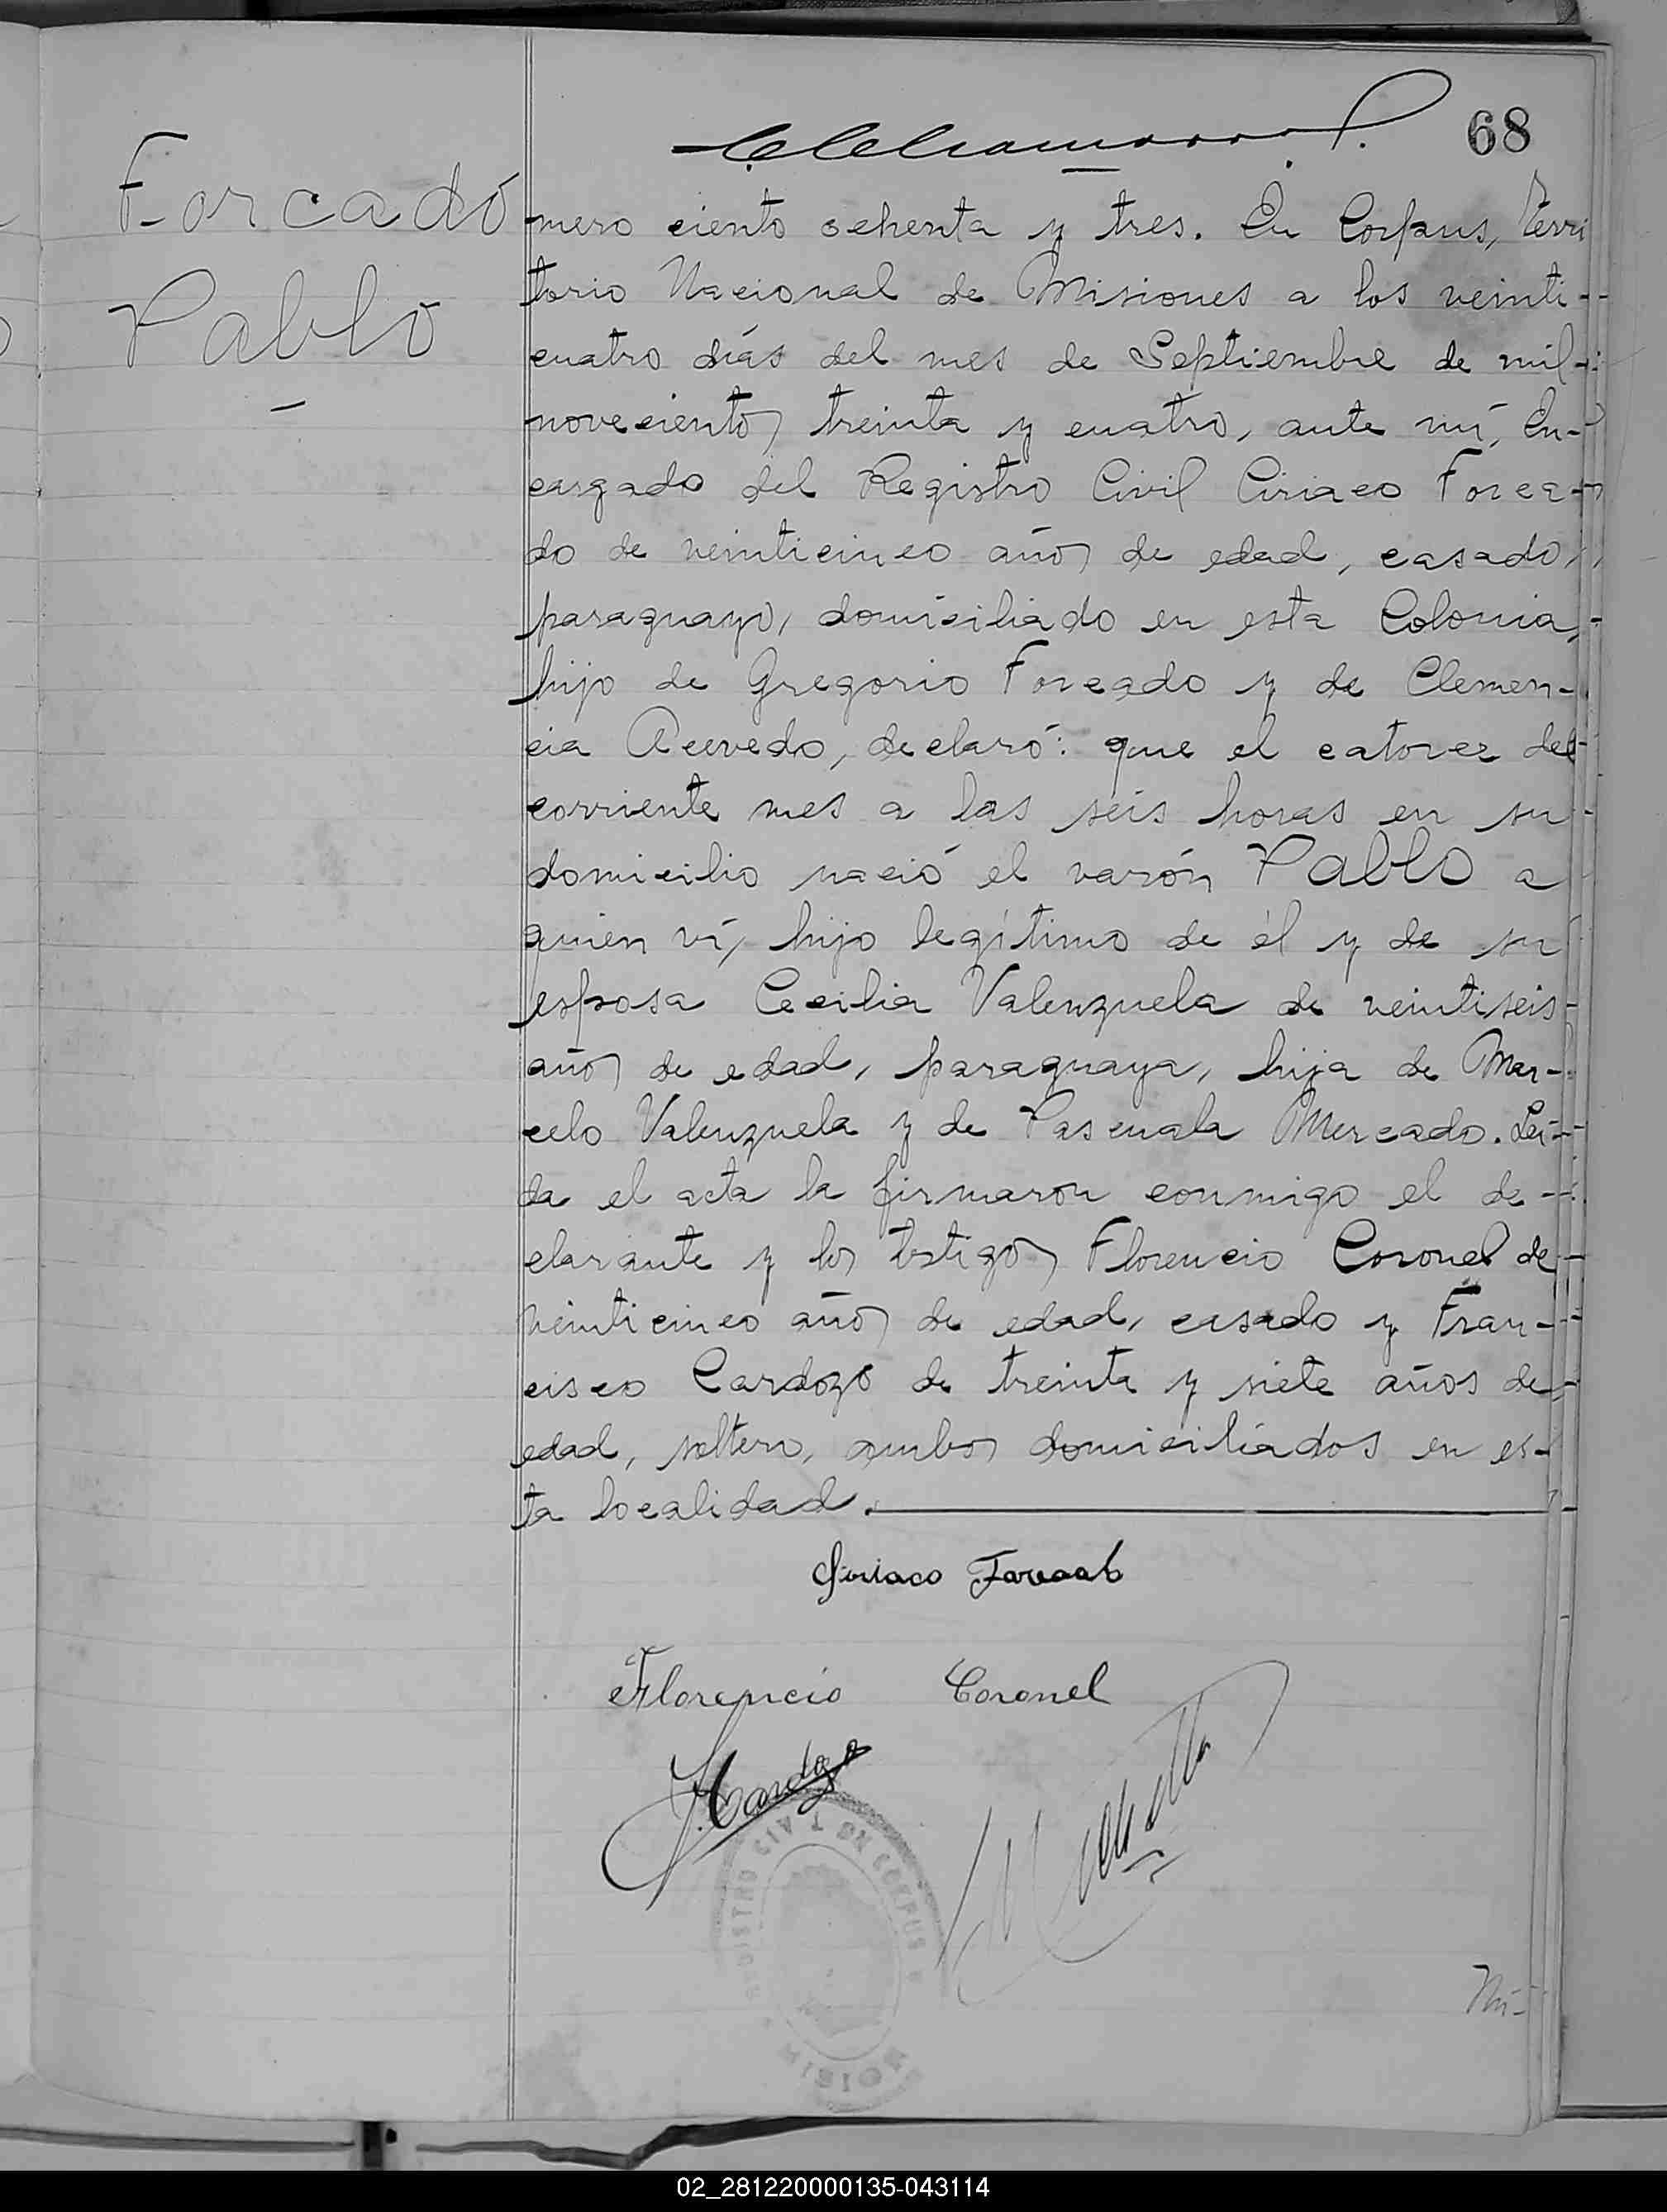 68
Forcado
Pablo
mero ciento ochenta y tres. En Corpus, Terri
torio Nacional de Misiones a los veinti-
cuatro días del mes de Septiembre de mil
novecientos treinta y cuatro, ante mí, En-
cargado del Registro Civil Ciriaco Forca-
do de veinticinco años de edad, casado,
paraguayo, domiciliado en esta Colonia,
hijo de Gregorio Forcado y de Clemen-
cia Acevedo, declaró: que el catorce del
corriente mes a las seis horas en su
domicilio nació el varón Pablo a
quien ví, hijo legítimo de él y de su
esposa Cecilia Valenzuela de veintiseis
años de edad, paraguaya, hija de Mar-
celo Valenzuela y de Pascuala Mercado. Leí-
da el acta la firmaron conmigo el de-
clarante y los testigos Florencio Coronel de
veinticinco años de edad, casado y Fran-
cisco Cardozo de treinta y siete años de
edad, soltero, ambos domiciliados en es-
ta localidad.
Siriaco Forcado
Florencio Coronel
REGISTRO CIVIL EN CORPUS
MISIONES
Nú-
02_281220000135-043114